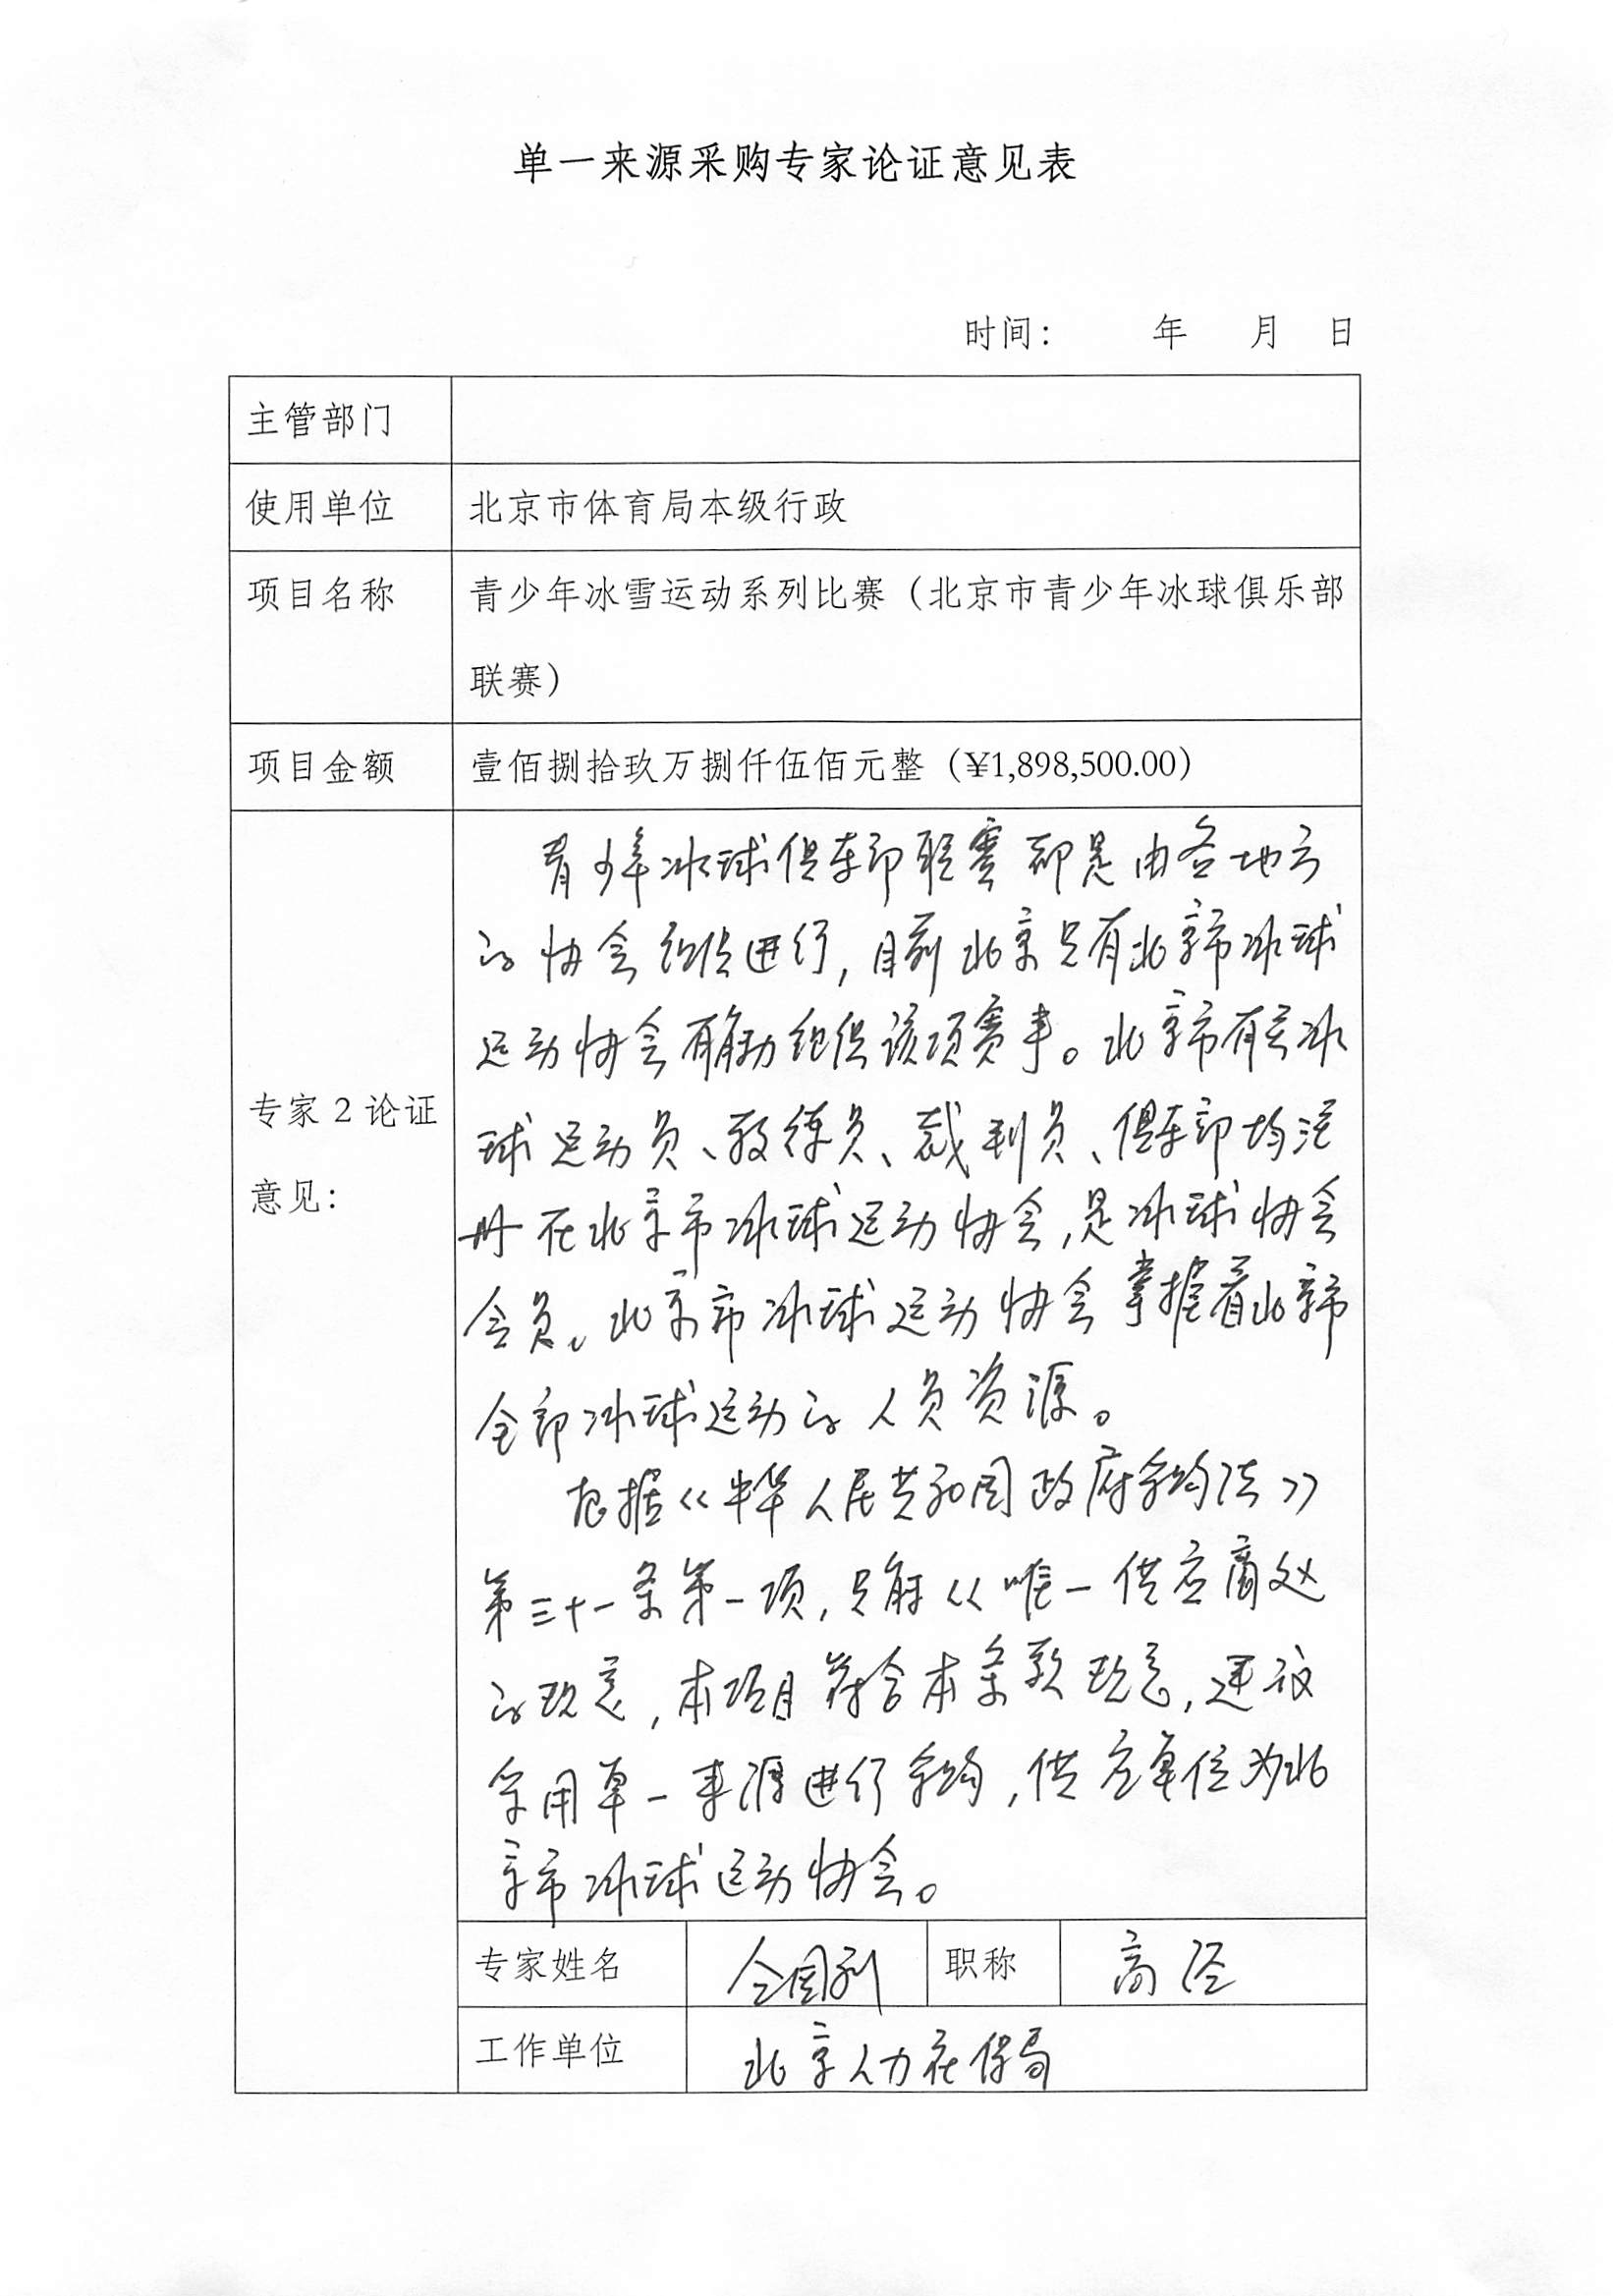 单一来源采购专家论证意见表
时间： 年 月 日
主管部门
使用单位 北京市体育局本级行政
项目名称 青少年冰雪运动系列比赛（北京市青少年冰球俱乐部
联赛）
项目金额 壹佰捌拾玖万捌仟伍佰元整（¥1,898,500.00）
专家2论证
意见：
青少年冰球俱乐部联赛都是由各地方
的协会组织进行，目前北京只有北京市冰球
运动协会有能力组织该项赛事。北京市有关冰
球运动员、教练员、裁判员、俱乐部均注
册在北京市冰球运动协会，是冰球协会
会员。北京市冰球运动协会掌握着北京市
全部冰球运动的人员资源。
根据《中华人民共和国政府采购法》
第三十一条第一项，只能从唯一供应商处
的规定，本项目符合本条款规定，建议
采用单一来源进行采购，供应单位为北
京市冰球运动协会。
专家姓名 职称 高经
工作单位 北京人力社保局